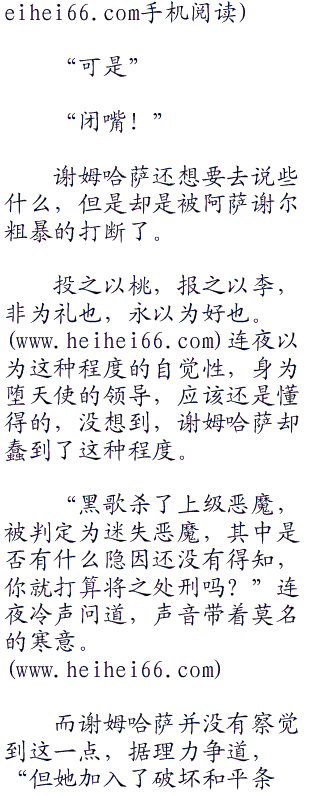 eihei66.com手机阅读)
“可是”
“闭嘴！”
谢姆哈萨还想要去说些
什么，但是却是被阿萨谢尔
粗暴的打断了。
投之以桃，报之以李，
非为礼也，永以为好也。
(www.heihei66.com)连夜以
为这种程度的自觉性，身为
堕天使的领导，应该还是懂
得的，没想到，谢姆哈萨却
蠢到了这种程度。
“黑歌杀了上级恶魔，
被判定为迷失恶魔，其中是
否有什么隐因还没有得知，
你就打算将之处刑吗？”连
夜冷声问道，声音带着莫名
的寒意。
(www.heihei66.com)
而谢姆哈萨并没有察觉
到这一点，据理力争道，
“但她加入了破坏和平条